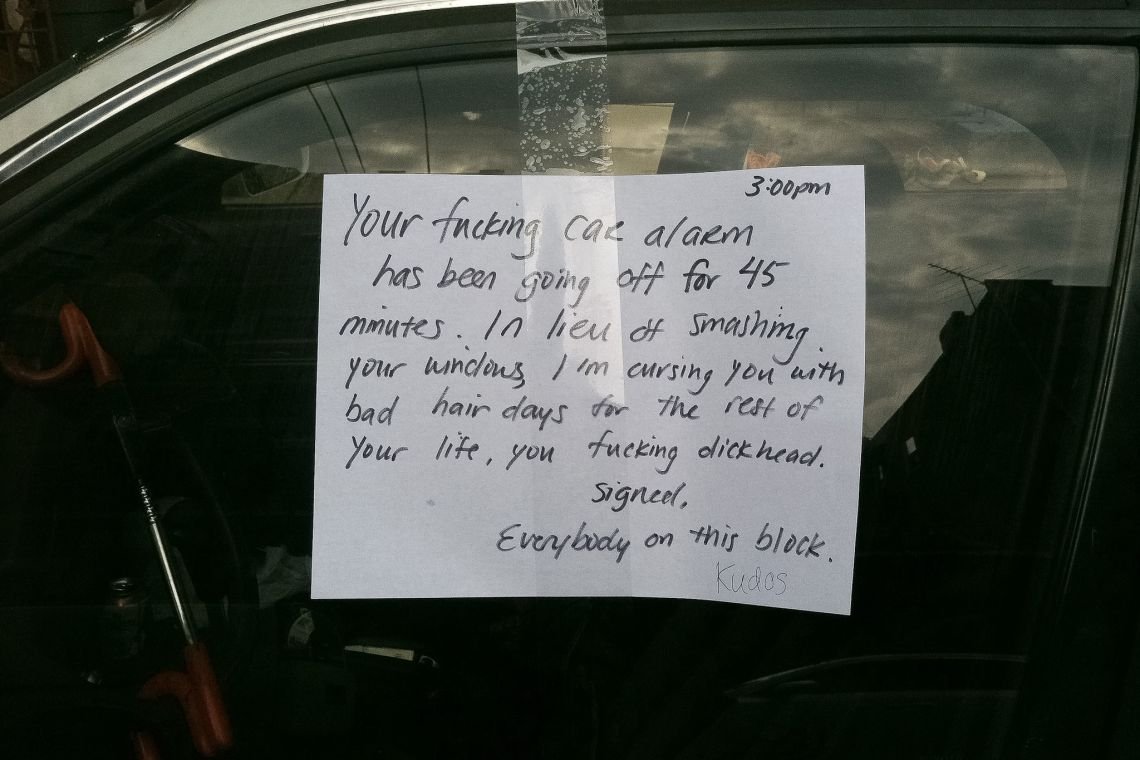 3:00pm
Your fucking car alarm
has been going off for 45
minutes. In lieu of smashing
your windows, I'm cursing you with
bad hair days for the rest of
your life, you fucking dickhead.
signed,
Everybody on this block.
Kudos